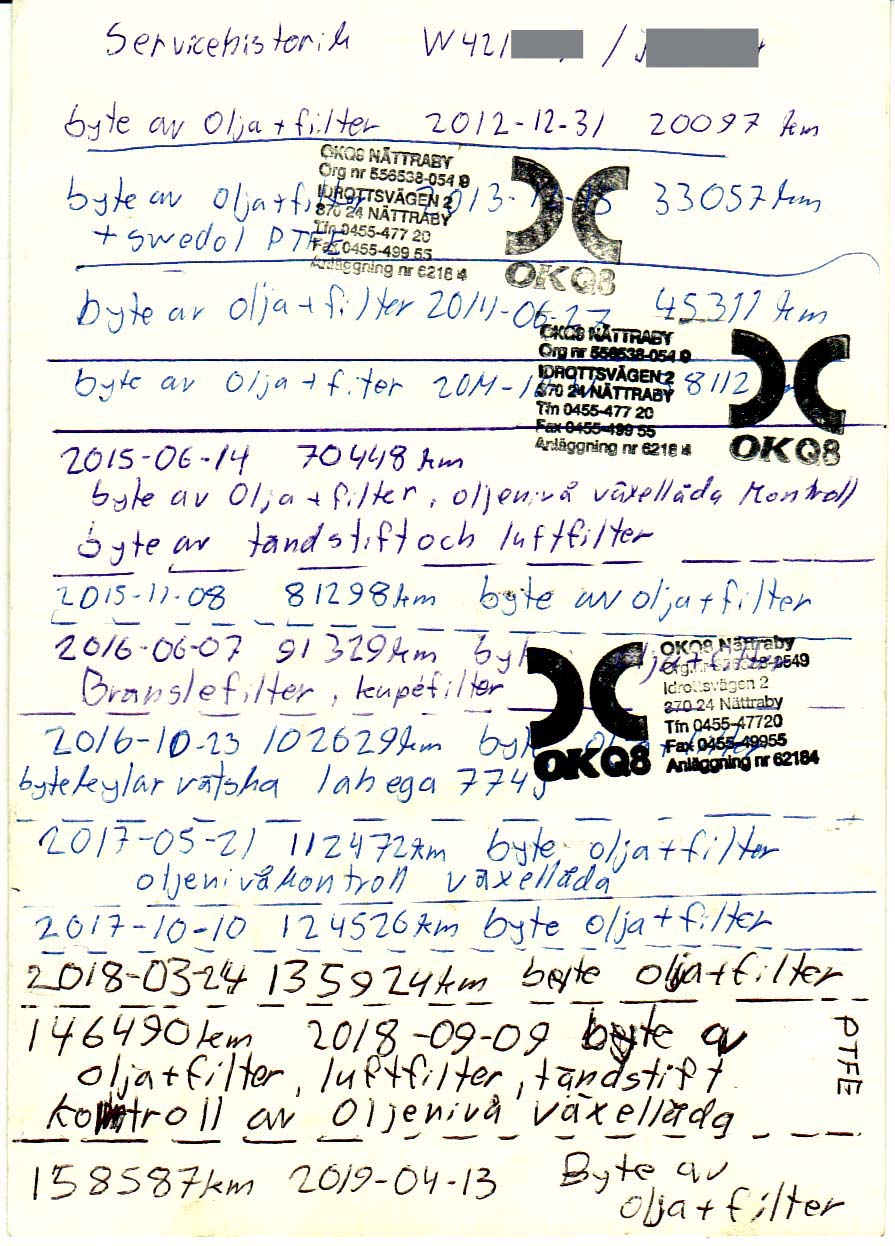 Servicehistorik W421 /
byte av olja + filter 2012-12-31 20097 km
OKQ8 NÄTTRABY
Org nr 556538-0549
IDROTTSVÄGEN 2
370 24 NÄTTRABY
Tfn 0455-477 20
Fax 0455-499 55
Anläggning nr 62184
OKQ8
byte av olja + filter 2013-12- 33057 km
+ swedol PTFE
byte av olja + filter 2014-06-27 45311 km
OKQ8 NÄTTRABY
Org nr 556538-0549
IDROTTSVÄGEN 2
370 24 NÄTTRABY
Tfn 0455-477 20
Fax 0455-499 55
Anläggning nr 62184
OKQ8
byte av olja + filter 8112
2015-06-14 70448 km
byte av olja + filter, oljenivå växellåda kontroll
byte av tändstift och luftfilter
2015-11-08 81298 km byte av olja + filter
2016-06-07 91329 km byte olja + filter
Bränslefilter, kupéfilter
OKQ8 Nättraby
Org.nr 556538-0549
Idrottsvägen 2
370 24 Nättraby
Tfn 0455-47720
Fax 0455-49955
Anläggning nr 62184
OKQ8
2016-10-23 102629 km byte olja + filter
byte kylar vätska lahega 774
2017-05-21 112472 km byte olja + filter
oljenivåkontroll växellåda
2017-10-10 124526 km byte olja + filter
2018-03-24 135924 km byte olja + filter
146490 km 2018-09-09 byte av
olja + filter, luftfilter, tändstift
kontroll av oljenivå växellåda
PTFE
158587 km 2019-04-13 Byte av
olja + filter